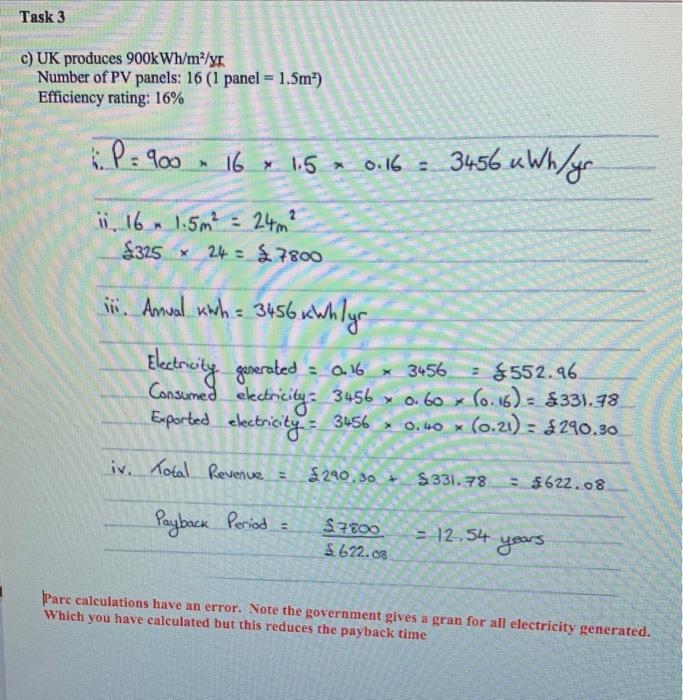 Task 3
c) UK produces 900kWh/m²/yr.
Number of PV panels: 16 (1 panel = 1.5m²)
Efficiency rating: 16%
i. P = 900 × 16 × 1.5 × 0.16 = 3456 kWh/yr
ii. 16 × 1.5m² = 24m²
£325 × 24 = £7800
iii. Annual kWh = 3456 kWh/yr
Electricity generated = 0.16 × 3456 = £552.96
Consumed electricity = 3456 × 0.60 × (0.16) = £331.78
Exported electricity = 3456 × 0.40 × (0.21) = £290.30
iv. Total Revenue = £290.30 + £331.78 = £622.08
Payback Period = £7800 = 12.54 years
£622.08
Parc calculations have an error. Note the government gives a gran for all electricity generated.
Which you have calculated but this reduces the payback time